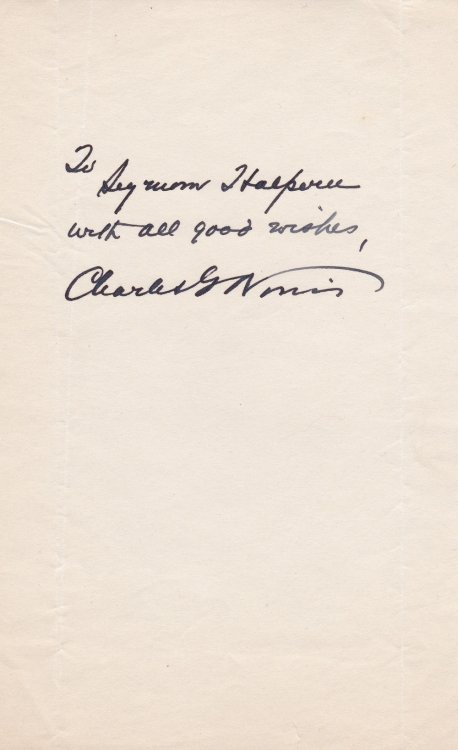 To
Seymour Halpern
with all good wishes,
Charles G Norris